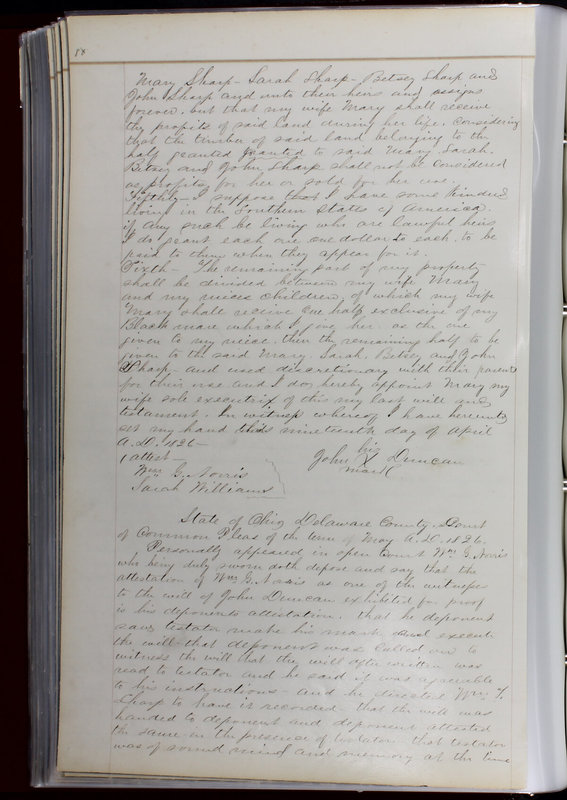 18
Mary Sharp - Sarah Sharp - Betsey Sharp and
John Sharp and unto their heirs and assigns
forever. but that my wife Mary shall receive
the profits of said land during her life. Considering
that the timber of said land belonging to the
half granted granted to said Mary, Sarah.
Betsey and John Sharp shall not be considered
as profits for her or sold for her use.
Fifthly - I suppose that I have some kindred
living in the Southern States of America.
if any such be living who are lawful heirs
I do grant each one one dollar to each. to be
paid to them when they appear for it.
Sixth - The remaining part of my property
shall be divided between my wife Mary
and my nieces children, of which my wife
Mary shall receive one half exclusive of my
Black mare which I give her. as the one
given to my niece. then the remaining half to be
given to the said Mary. Sarah. Betsey and John
Sharp - and used discretionary with their parents
for their use and I do hereby appoint Mary my
wife sole executrix of this my last will and
testament. In witness whereof I have hereunto
set my hand this nineteenth day of April
A.D. 1826 -
attest -
his
John X Duncan
mark
Wm. G. Norris
Sarah Williams
State of Ohio Delaware County. Court
of Common Pleas of the term of May A.D. 1826.
Personally appeared in open Court Wm G Norris
who being duly sworn doth depose and say that the
attestation of Wm G. Norris as one of the witness
to the will of John Duncan exhibited for proof
is his deponents attestation. that he deponent
saw testator make his mark and execute
the will - that deponent was called on to
witness the will that the will after written was
read to testator and he said it was agreeable
to his instructions - and he directed Wm. T.
Sharp to have it recorded - that the will was
handed to deponent and deponent attested
the same in the presence of testator. that testator
was of sound mind and memory at the time